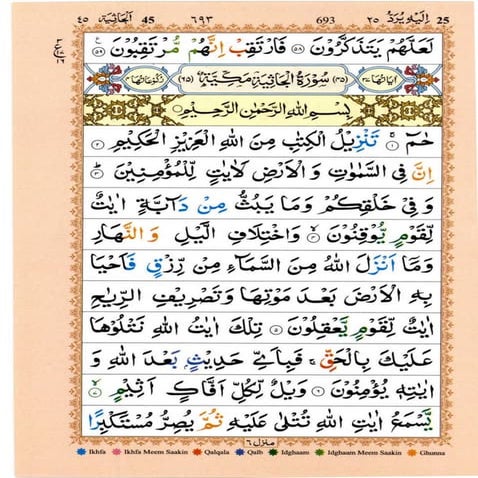 ٤٥ الجاثیة 45 ٦٩٣ 693 اِلَیْهِ یُرَدُّ ٢٥ 25
لَعَلَّهُمْ یَتَذَكَّرُوْنَ ۝٥٨ فَارْتَقِبْ اِنَّهُمْ مُّرْتَقِبُوْنَ ۝٥٩
سُوْرَةُ الْجَاثِیَةِ مَكِّیَّةٌ (٦٥)
بِسْمِ اللّٰهِ الرَّحْمٰنِ الرَّحِیْمِ
حٰمٓ ۝١ تَنْزِیْلُ الْكِتٰبِ مِنَ اللّٰهِ الْعَزِیْزِ الْحَكِیْمِ ۝٢
اِنَّ فِی السَّمٰوٰتِ وَ الْاَرْضِ لَاٰیٰتٍ لِّلْمُؤْمِنِیْنَ ۝٣
وَ فِیْ خَلْقِكُمْ وَ مَا یَبُثُّ مِنْ دَآبَّةٍ اٰیٰتٌ
لِّقَوْمٍ یُّوْقِنُوْنَ ۝٤ وَ اخْتِلَافِ الَّیْلِ وَ النَّهَارِ
وَ مَاۤ اَنْزَلَ اللّٰهُ مِنَ السَّمَآءِ مِنْ رِّزْقٍ فَاَحْیَا
بِهِ الْاَرْضَ بَعْدَ مَوْتِهَا وَ تَصْرِیْفِ الرِّیٰحِ
اٰیٰتٌ لِّقَوْمٍ یَّعْقِلُوْنَ ۝٥ تِلْكَ اٰیٰتُ اللّٰهِ نَتْلُوْهَا
عَلَیْكَ بِالْحَقِّ ۚ فَبِاَیِّ حَدِیْثٍۭ بَعْدَ اللّٰهِ وَ
اٰیٰتِهٖ یُؤْمِنُوْنَ ۝٦ وَیْلٌ لِّكُلِّ اَفَّاكٍ اَثِیْمٍ ۝٧
یَّسْمَعُ اٰیٰتِ اللّٰهِ تُتْلٰى عَلَیْهِ ثُمَّ یُصِرُّ مُسْتَكْبِرًا
منزل ٦
Ikhfa Ikhfa Meem Saakin Qalqala Qalb Idghaam Idghaam Meem Saakin Ghunna